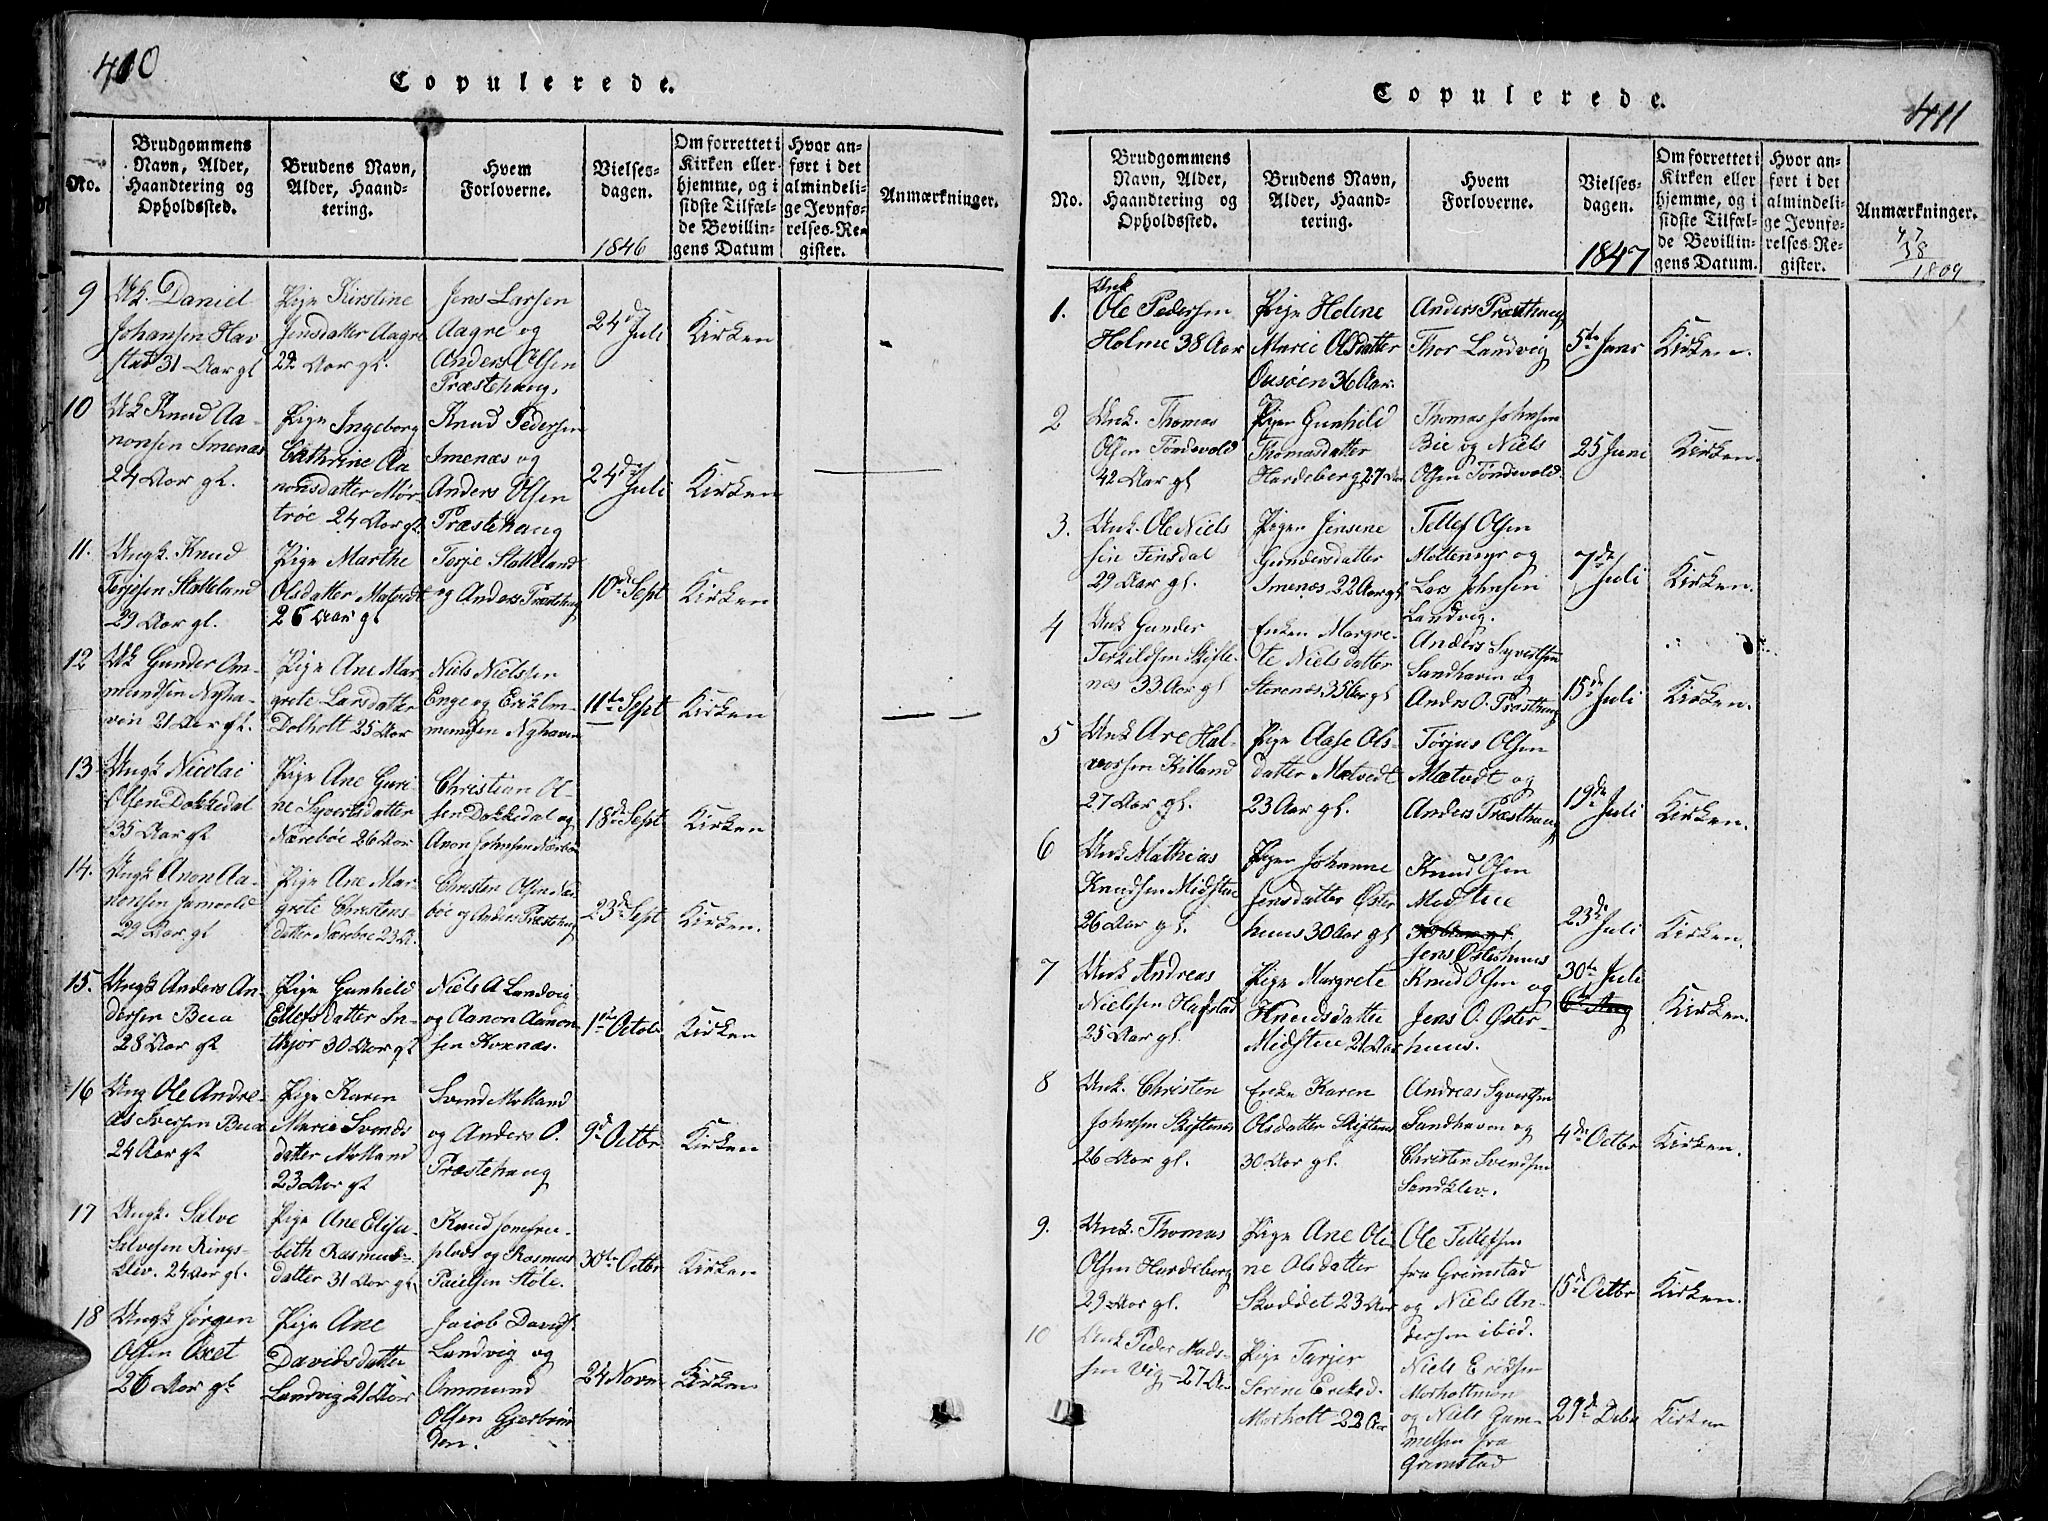 410
Copulerede.
No.
Brudgommens
Navn, Alder,
Haandtering og
Opholdssted.
Brudens Navn,
Alder, Haand-
tering.
Hvem
Forloverne.
Vielses-
dagen.
1846
Om forrettet i
Kirken eller
hjemme, og i
sidste Tilfæl-
de Bevillin-
gens Datum
Hvor an-
ført i det
almindeli-
ge Jevnfø-
relses-Re-
gister.
Anmærkninger.
9
Uk. Daniel
Johansen Hav
stad 31 Aar gl
Pige Kirstine
Jensdatter Aagre
22 Aar gl.
Jens Larsen
Aagre og
Anders Olsen
Præstehaug,
24de Juli
Kirken
10
Uk Knud Aa-
nonsen Imenæs
24 Aar gl.
Pige Ingeborg
Cathrine Aa
nonsdatter Mør-
trøe 24 Aar gl.
Knud Pedersen
Imenæs og
Anders Olsen
Præstehaug
24de Juli
Kirken
11.
Ungk. Knud
Terjesen Stalleland
29 Aar gl.
Pige Marthe
Olsdatter Matvedt
26 Aar gl
Terje Stalleland
og Anders Præstehaug
10de Sept
Kirken
12
Uk Gunder Om-
mundsen Nyha-
vn 21 Aar gl.
Pige Ane Mar-
grete Larsdatter
Dolholt 25 Aar
Niels Nielssen
Enge og Erik Om-
mundsen Nyhaven
11te Sept
Kirken
13
Ungk Nicolai
Olsen Dokkedal
35 Aar gl
Pige Ane Guri-
ne Syvertsdatter
Nærebøe 26 Aar
Christian Ol-
sen Dokkedal og
Anon Johnsen Nærbøe
18de Sept
Kirken
14.
Ungk Anon Aa-
nonsen
29 Aar gl
Pige Ane Mar-
grete Christens-
datter Nærebøe 23 A.
Christen Olsen Næ
bøe og Anders Præstehaug
23de Sept
Kirken.
15.
Ungk Anders An-
dersen Bua
28 Aar gl
Pige Gunhild
Ellefsdatter In-
tkjør 30 Aar gl
Niels A Landvig
og Aanon Aanon-
sen Kornæs.
1ste Octob
Kirken
16
Ung Ole Andre-
as Iversen Bua
24 Aar gl
Pige Karen
Marie Svends
datter Molland
23 Aar gl
Svend Molland
og Anders O.
Præstehaug
9d Octbr
Kirken
17
Ungk. Salve
Salvesen Rings-
klev. 24 Aar gl.
Pige Ane Elisa
beth Rasmus-
datter 31 Aar gl.
Knud Jomfru-
plads og Rasmus
Paulsen Støle.
30te Octbr
Kirken
18
Ungk Jørgen
Olsen Oxet
26 Aar gl
Pige Ane
Davidsdatter
Landvig 21 Aar
Jacob Davids.
Landvig og
Ommund
Olsen Gjerbrøn-
den.
24 Novn
Kirken
411
Copulerede.
No.
Brudgommens
Navn, Alder,
Haandtering og
Opholdssted.
Brudens Navn,
Alder, Haand-
tering.
Hvem
Forloverne.
Vielses-
dagen.
1847
Om forrettet i
Kirken eller
hjemme, og i
sidste Tilfæl-
de Bevillin-
gens Datum.
Hvor an-
ført i det
almindeli-
ge Jevnfø-
relses-Re-
gister.
Anmærkninger.
47
38
1809
1.
Unk
Ole Pedersen
Holme 38 Aar
Pige Helene
Marie Olsdatter
Ousøen 36 Aar.
Anders Præsthaug
Thor Landvig
5te Janr
Kirken.
2
Unk. Thomas
Olsen Tøndevold
42 Aar gl
Pigen Gunhild
Thomasdatter
Hardeberg 27 Aar
Thomas Johnsen
Bie og Niels
Olsen Tøndevold.
25 Juni
Kirken.
3.
Unk. Ole Niels
sen Finsdal
29 Aar gl.
Pigen Jensine
Gundersdatter
Imenæs 22 Aar gl
Tellef Olsen
Moltemyr og
Lars Johnsen
Landvig.
7de Juli
Kirken.
4
Unk Gunder
Terkildsen Skifte-
næs 33 Aar gl
Enken Margre-
te Nielsdatter
Sterenæs 35 Aar gl
Anders Syvertsen
Sandhaven og
Anders O. Præsthaug
15de Juli
Kirken.
5
Unk Are Hal-
vorsen Killand
27 Aar gl.
Pige Aase Ols-
datter Mætvedt
23 Aar gl.
Tørjus Olsen
Mætvedt og
Anders Præsthaug
19de Juli
Kirken.
6
Unk Mathias
Knudsen Midstue
26 Aar gl.
Pigen Johanne
Jensdatter Øster
huus 30 Aar gl
Knud Olsen
Midstue
30 Aar gl.
Jens Østerhuus
23de Juli
Kirken.
7
Unk Andreas
Nielsen Havstad
25 Aar gl.
Pige Margrete
Knudsdatter
Midstue 21 Aar
Knud Olsen og
Jens O. Øster-
huus.
30te Juli
6te Aug
Kirken.
8
Unk. Christen
Johnsen Skiftenæs
26 Aar gl.
Enke Karen
Olsdatter Skiftenæs
30 Aar gl.
Andreas Syvertsen
Sandhaven og
Christen Svendsen
Sandklev.
4de Octbr
Kirken.
9.
Unk. Thomas
Olsen Hardeberg
29 Aar gl.
Pige Ane Oli-
ne Olsdatter
Skoddet 23 Aar
Ole Tellefsen
fra Grimstad
og Niels An-
dersen ibid.
15de Octbr
Kirken.
10
Unk Peder Mads-
sen Vig - 27 Aar
Pige Tarjer
Serine Eriksd.
Morholt 22 Aar
Niels Eriksen
Morholtmon
og Niels Gum-
melsen fra
Grimstad
29de Debr
Kirken